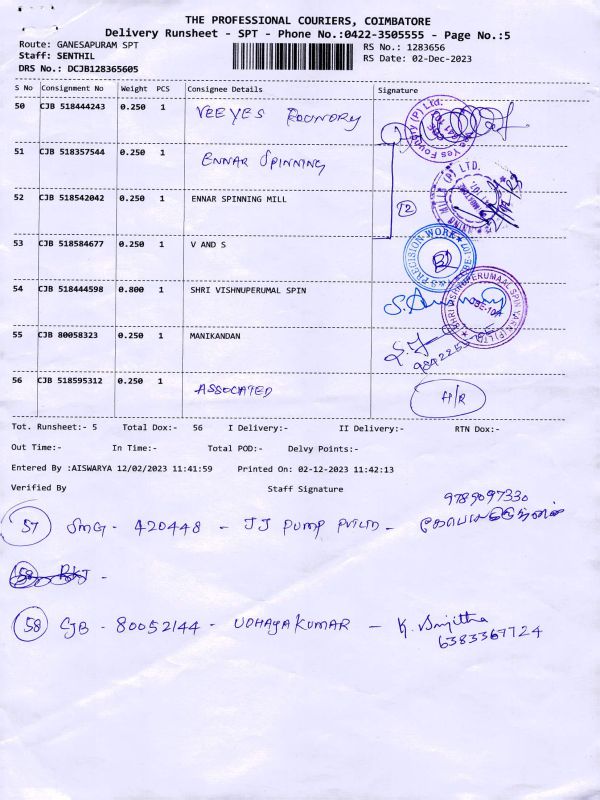 THE PROFESSIONAL COURIERS, COIMBATORE
Delivery Runsheet - SPT - Phone No.:0422-3505555 - Page No.:5
Route: GANESAPURAM SPT
RS No.: 1283656
Staff: SENTHIL
RS Date: 02-Dec-2023
DRS No.: DCJB128365605
S No Consignment No Weight PCS Consignee Details Signature
50 CJB 518444243 0.250 1 VEEYES FOUNDRY
51 CJB 518357544 0.250 1 ENNAR SPINNING
52 CJB 518542042 0.250 1 ENNAR SPINNING MILL 2
53 CJB 518584677 0.250 1 V AND S
PRECISION WORK
54 CJB 518444598 0.800 1 SHRI VISHNUPERUMAL SPIN
55 CJB 80058323 0.250 1 MANIKANDAN
56 CJB 518595312 0.250 1 ASSOCIATED H/R
Tot. Runsheet:- 5 Total Dox:- 56 I Delivery:- II Delivery:- RTN Dox:-
Out Time:- In Time:- Total POD:- Delvy Points:-
Entered By :AISWARYA 12/02/2023 11:41:59 Printed On: 02-12-2023 11:42:13
Verified By Staff Signature
9789097330
57 SMG - 420448 - JJ PUMP PVT LTD -
58 CJB - 80052144 - UDHAYAKUMAR - K. Srijitha
6383367724